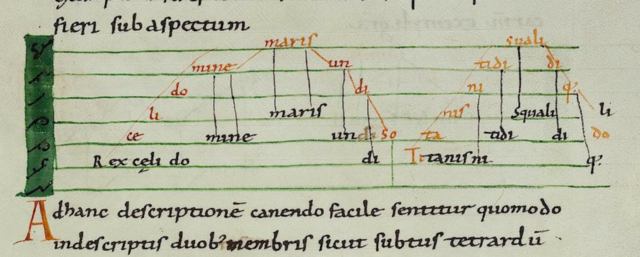 fieri sub aspectum
maris suali
mine un tidi di
do di ni q;
li maris nis squali li
ce mine un di so ta tidi di do
Rex cęli do di Titanis ni q;
Ad hanc descriptionē canendo facile sentitur quomodo
in descriptis duob; membris sicut subtus tetrardū